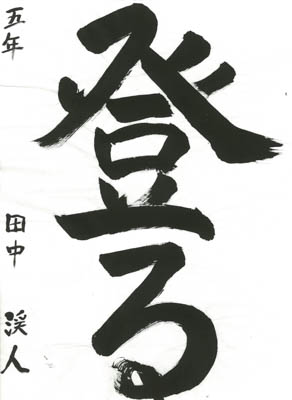 登る
五年 田中 渓人